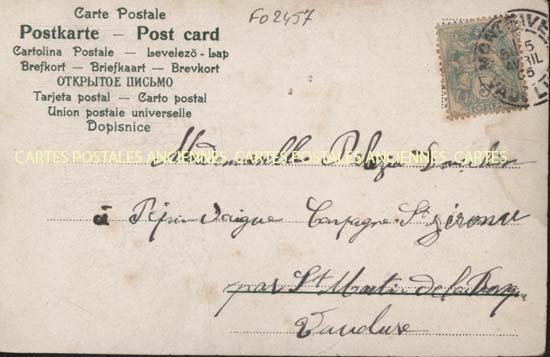 Carte Postale
Postkarte — Post card
Cartolina Postale — Levelező-Lap
Brefkort — Briefkaart — Brevkort
ОТКРЫТОЕ ПИСЬМО
Tarjeta postal — Carto postal
Union postale universelle
Dopisnice
FO2457
POSTES
CARTES POSTALES ANCIENNES CARTES POSTALES ANCIENNES
Mademoiselle
à Campagne St Jérome
par St Martin de la
Vaucluse